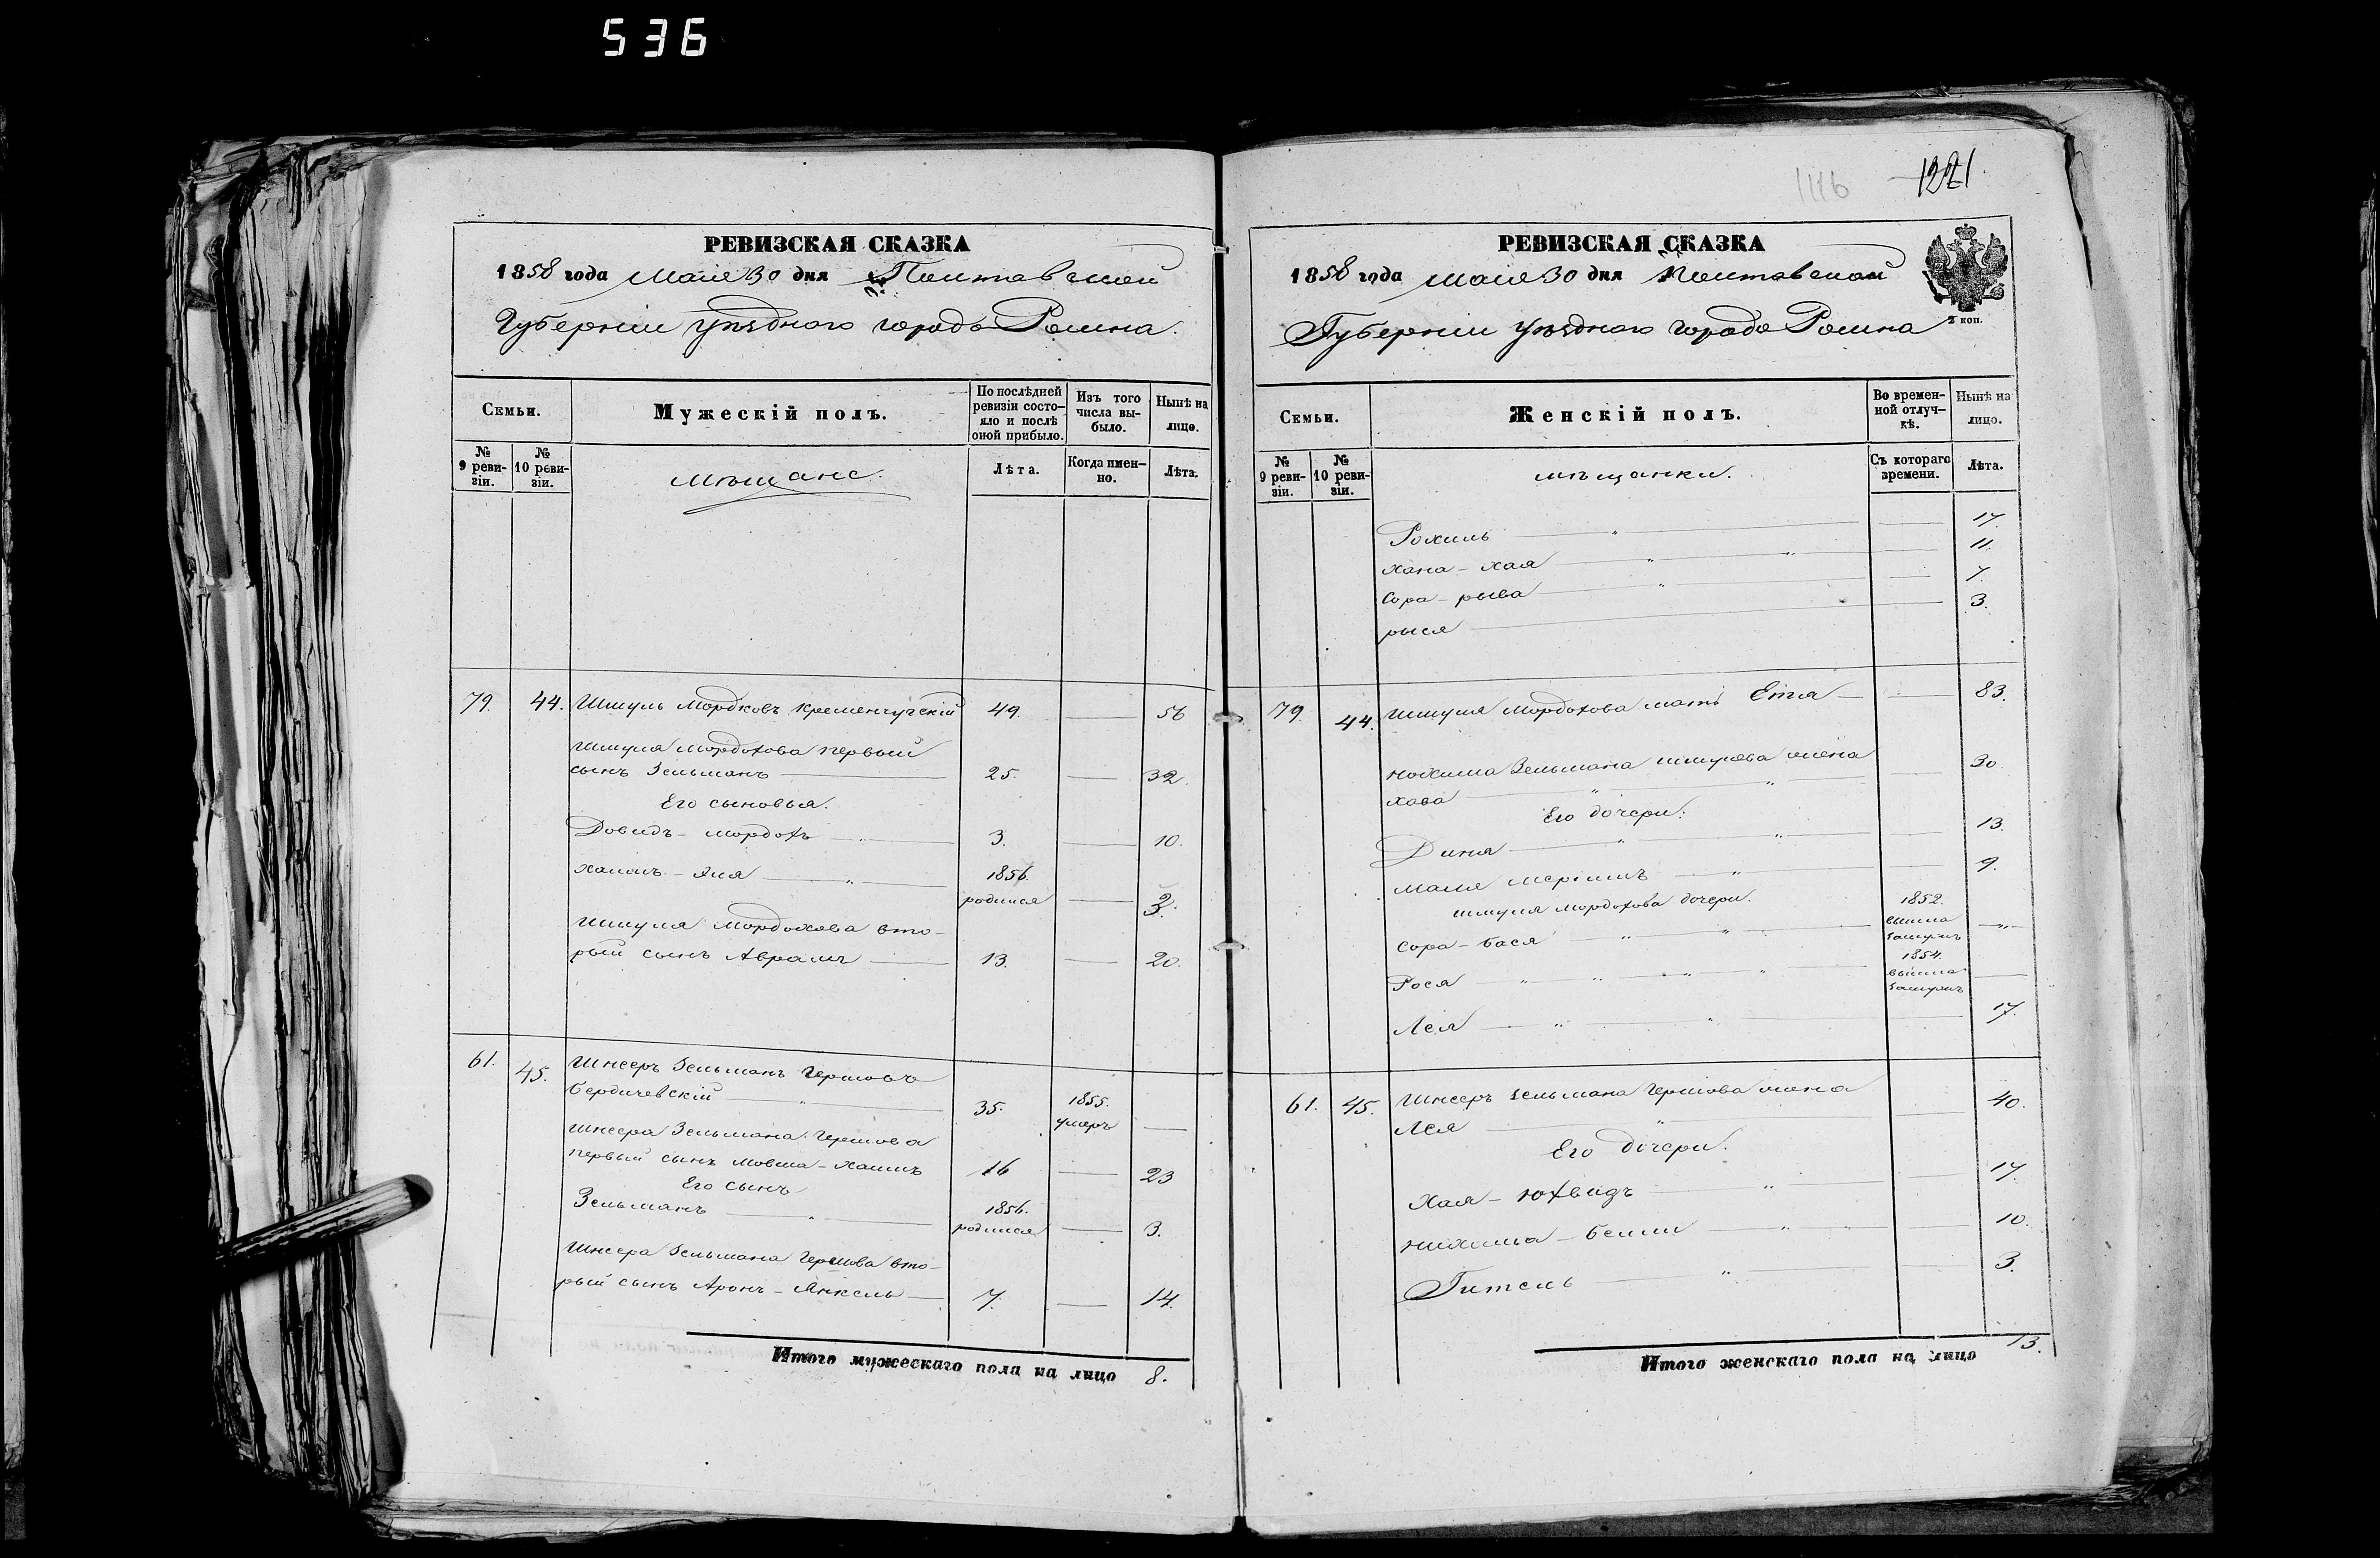 536
РЕВИЗСКАЯ СКАЗКА
1858 года Маія 30 дня Полтавской
Губерніи уѣзднаго города Ромна.
Семьи.
Мужескій полъ.
По послѣдней ревизіи состояло и послѣ оной прибыло.
Изъ того числа выбыло.
Нынѣ на лице.
№ 9 ревизіи.
№ 10 ревизіи.
Мѣщане.
Лѣта.
Когда именно.
Лѣта.
79. 44. Шмуль Мордковъ Кременчугскій 49. 56
Шмуля Мордохова первый
сынъ Зельманъ 25. 32.
Его сыновья.
Довидъ - Мордохъ 3. 10.
Хаимъ - Эля 1856. родился 3.
Шмуля Мордохова вто-
рый сынъ Аврамъ 13. 20.
61. 45. Шнееръ Зельманъ Гершовъ
Бердичевскій 35. 1855. умеръ
Шнеера Зельмана Гершова
первый сынъ Мовша - Хаимъ 16 23
Его сынъ
Зельманъ 1856. родился 3.
Шнеера Зельмана Гершова вто-
рый сынъ Аронъ - Янкель 7. 14.
Итого мужескаго пола на лицо 8.
1116
1221
РЕВИЗСКАЯ СКАЗКА
1858 года Маія 30 дня Полтавской
Губерніи уѣзднаго города Ромна
2 коп.
Семьи.
Женскій полъ.
Во временной отлучкѣ.
Нынѣ на лицо.
№ 9 ревизіи.
№ 10 ревизіи.
мѣщанки.
Съ котораго времени.
Лѣта.
Рохиль 17.
Хана - Хая 11.
Сора - рыва 7.
рыся 3.
79. 44. Шмуля Мордохова мать Етля 83.
Зельмана Шмулева жена
Хава 30
Его дочери:
Диня 13.
9.
Шмуля Мордохова дочери.
Сора - Бася 1852. вышла замужъ
Рося 1854. вышла замужъ
Лея 17.
61. 45. Шнеера Зельмана Гершова жена
Лея 40.
Его дочери.
Хая - Юхвидъ 17.
10.
Гитель 3.
Итого женскаго пола на лицо 13.